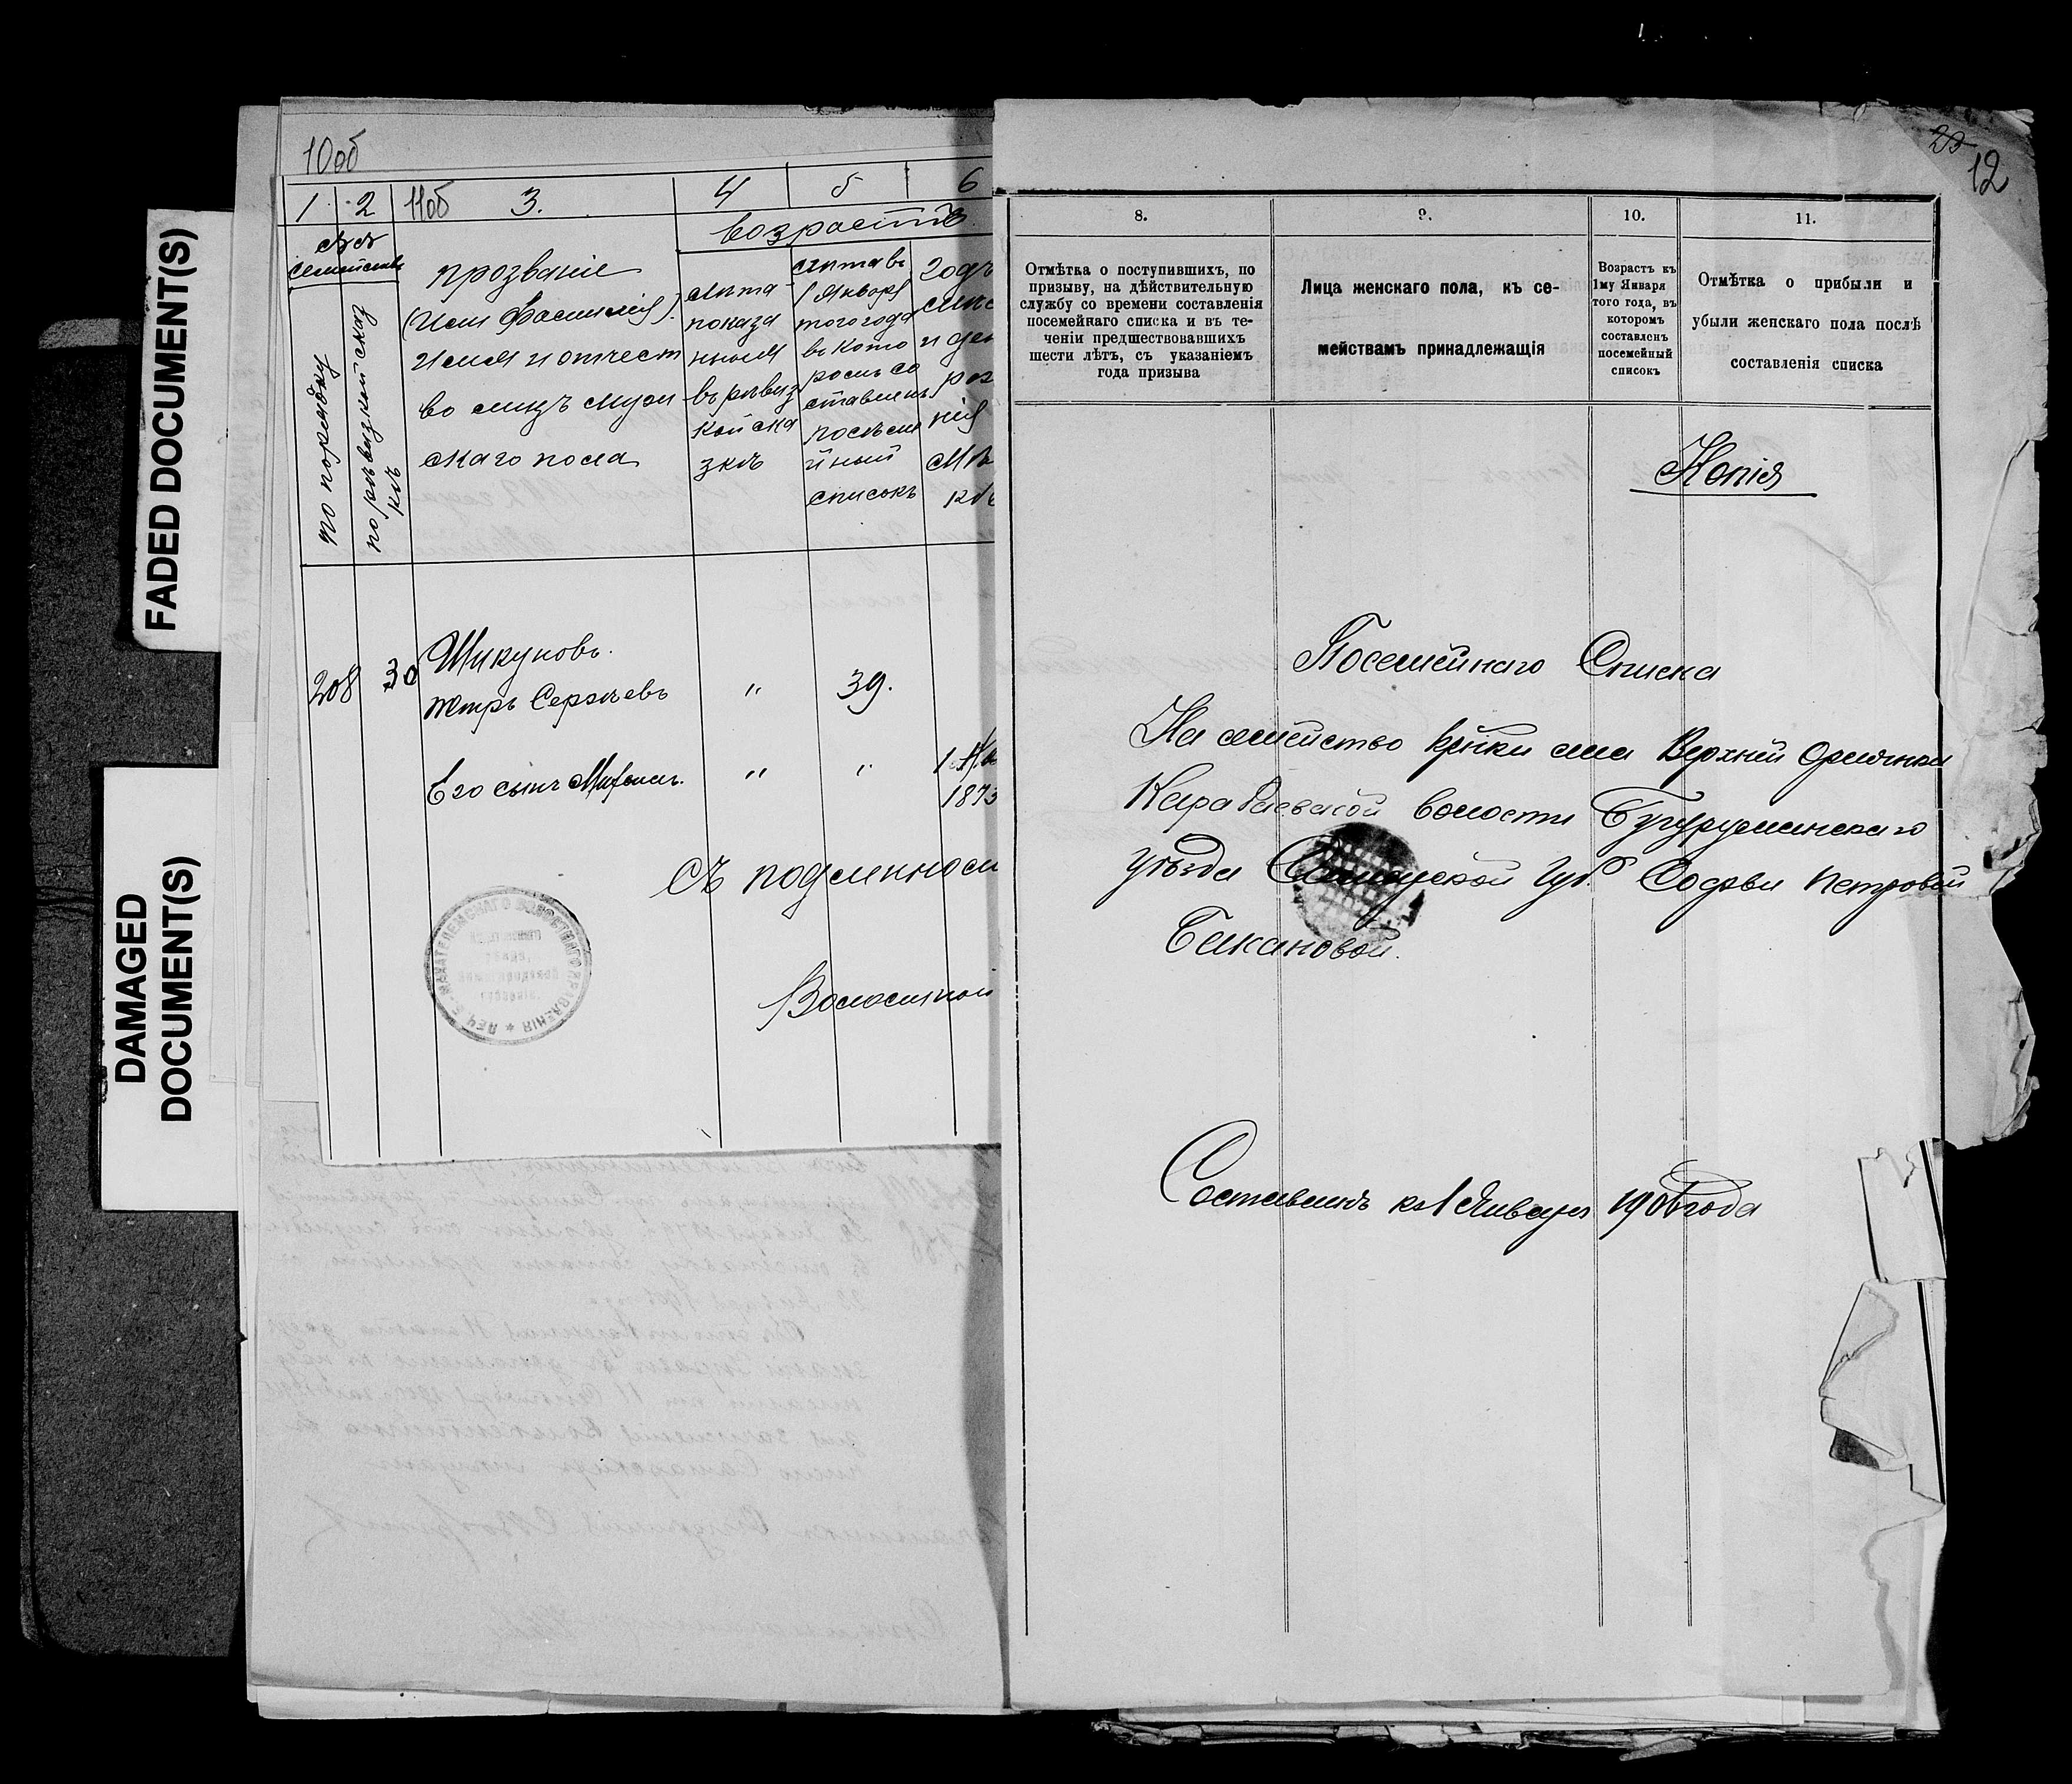 FADED DOCUMENT(S)
DAMAGED
DOCUMENT(S)
10об
1 2 11об 3. 4 5 6
возрастъ
№№
семействъ
по порядку
по ревизской сказ
кѣ
прозваніе
(Или Фамилія).
имя и отчест
во лицъ муж
скаго пола
лѣта
показа
нныя
въ ревиз
кой ска
зкѣ
лѣта въ
1 Января
того года
въ кото
ромъ со
ставленъ
посѣмей
йный
списокъ
Годъ
и ден
рож
нія
208 30 Шикуновъ.
Петръ Сергѣевъ " 39.
Его сынъ " "
1873
Съ подлинном
Волостной
23
12
8. 9. 10. 11.
Отмѣтка о поступившихъ, по
призыву, на дѣйствительную
службу со времени составленія
посемейнаго списка и въ те-
ченіи предшествовавшихъ
шести лѣтъ, съ указаніемъ
года призыва
Лица женскаго пола, къ се-
мействамъ принадлежащія
Возрастъ къ
1му Января
того года, въ
которомъ
составленъ
посемейный
списокъ
Отмѣтка о прибыли и
убыли женскаго пола послѣ
составленія списка
Копія
Посемейнаго Списка
На семейство кр̃нки села Верхней Орлянки
Карабаевской волости Бугурусланскаго
уѣзда Самарской губ. Софьи Петровой
Бакановой.
Составленъ къ 1 Января 1906 года